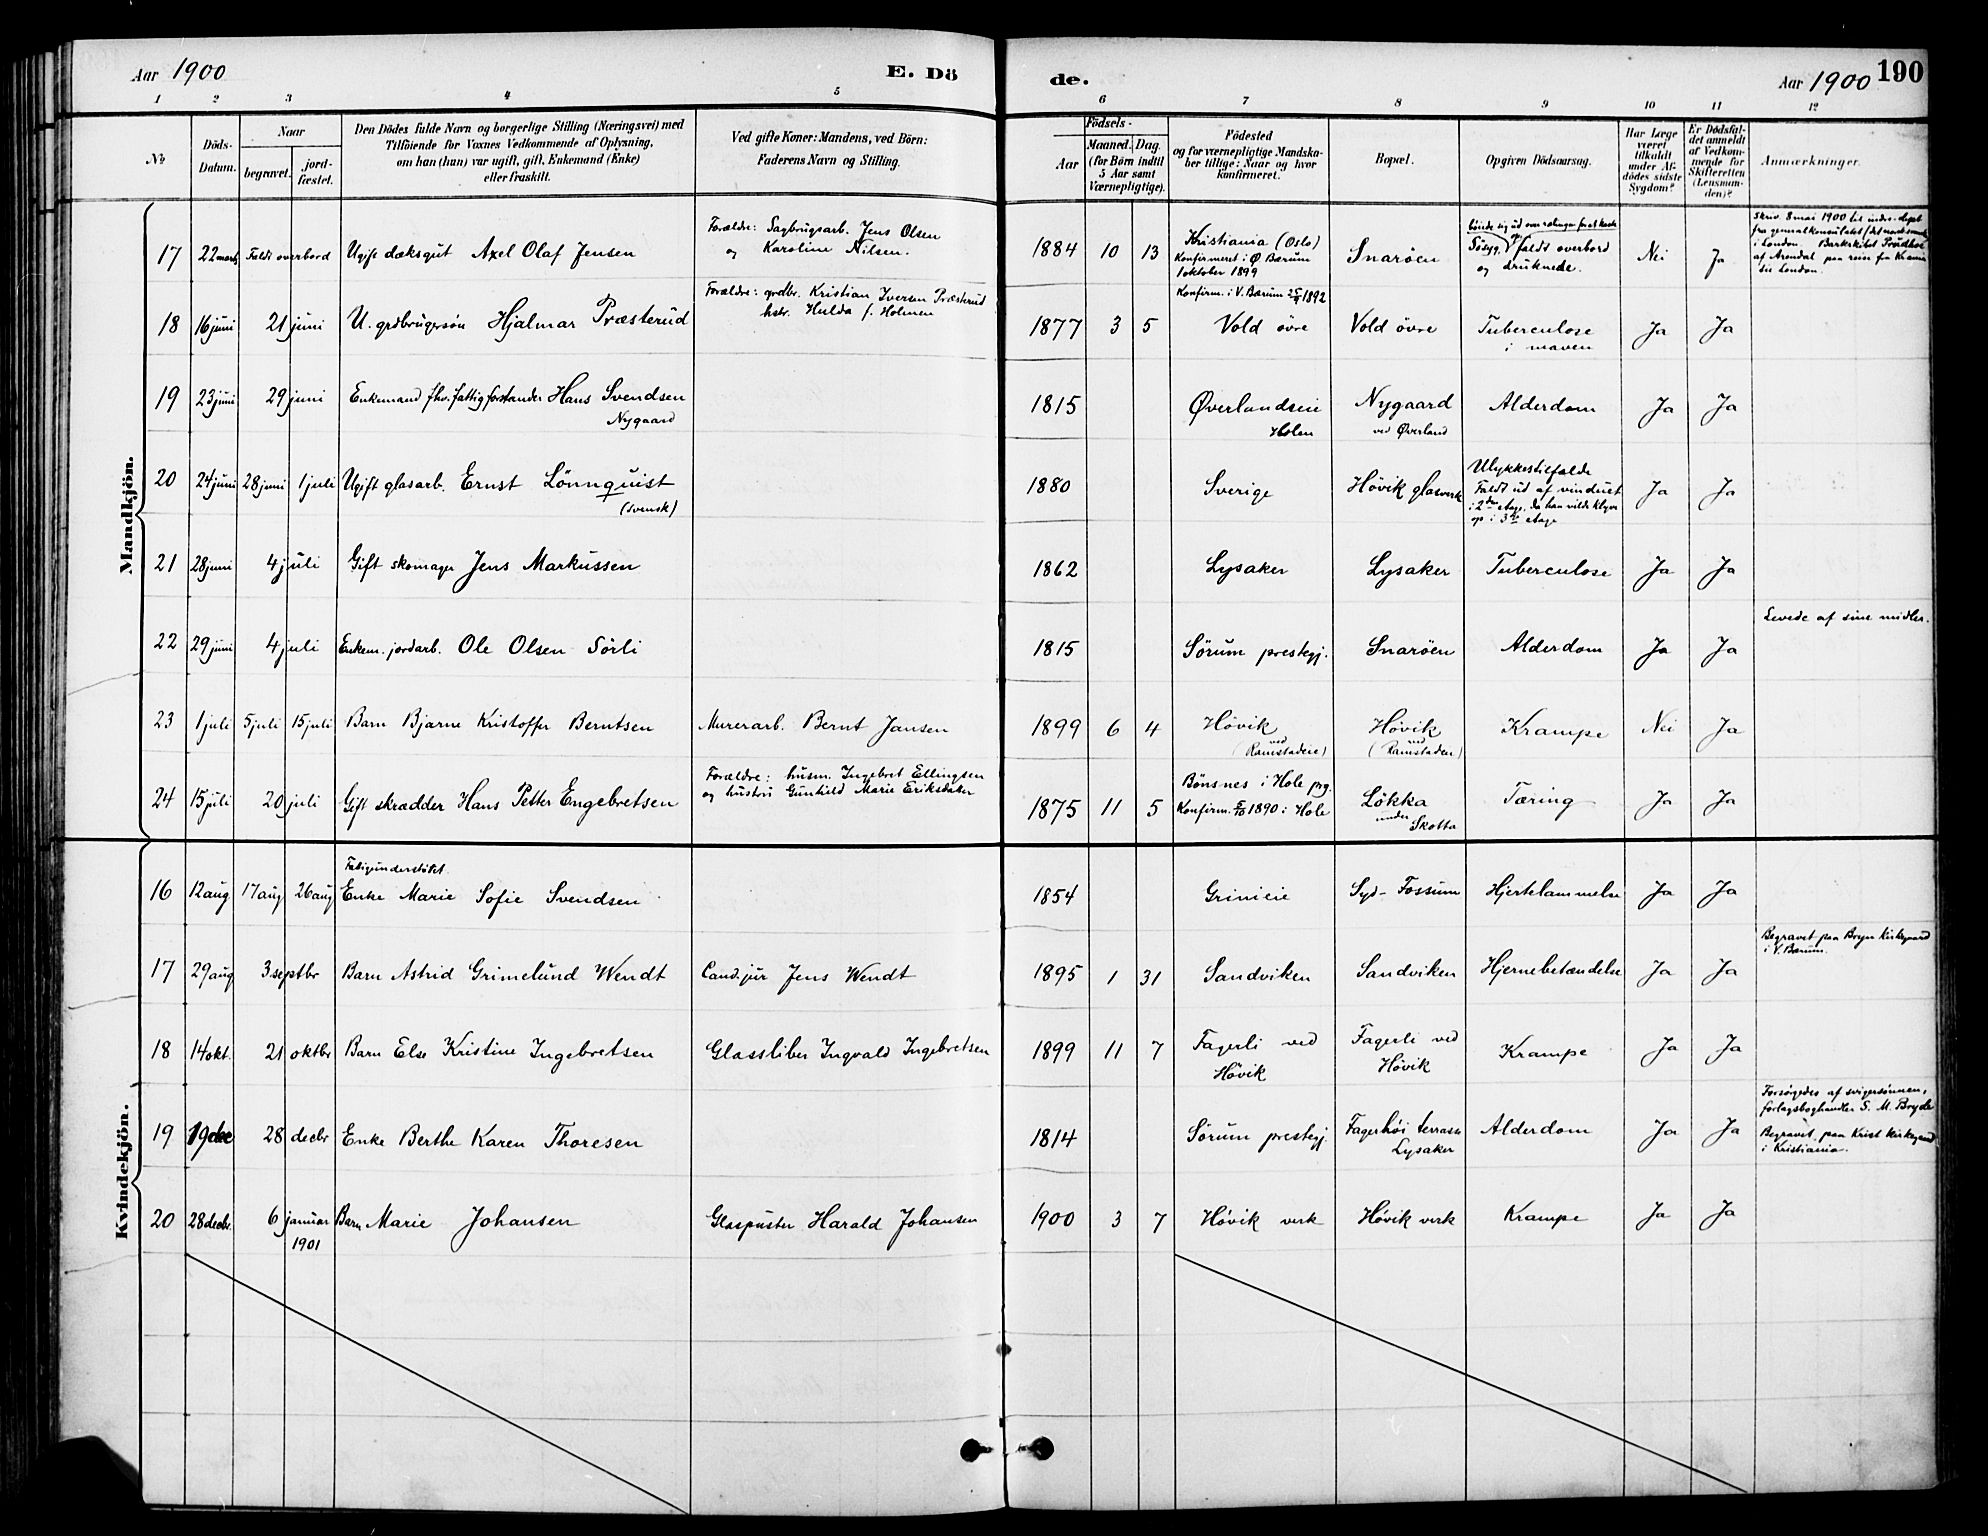 Aar 1900
E. Dö
de.
Aar 1900
190
1 2 3 4 5 6 7 8 9 10 11 12
No
Döds-
Datum.
Naar
begravet.
jord-
fæstet.
Den Dödes fulde Navn og borgerlige Stilling (Næringsvei) med
Tilföiende for Voxnes Vedkommende af Oplysning,
om han (hun) var ugift, gift, Enkemand (Enke)
eller fraskilt.
Ved gifte Koner: Mandens, ved Börn:
Faderens Navn og Stilling.
Födsels-
Aar
Maaned. Dag.
(for Börn indtil
5 Aar samt
Værnepligtige).
Födested
og for værnepligtige Mandska-
ber tillige: Naar og hvor
konfirmeret.
Bopæl.
Opgiven Dödsaarsag.
Har Læge
været
tilkaldt
under Af-
dödes sidste
Sygdom?
Er Dödsfal-
det anmeldt
af Vedkom-
mende for
Skifteretten
(Lensman-
den)?
Anmærkninger.
Mandkjön.
17 22 marts Faldt overbord Ugift dæksgut Axel Olaf Jensen
Forældre: Sagbrugsarb. Jens Olsen
og Karoline Nilsen.
1884 10 13
Kristiania (Oslo)
Konfirmeret i Ø Bærum
1 oktober 1899
Snarøen
Søsyg, faldt overbord
og druknede.
Nei Ja
skriv. 8 mai 1900 til indre-dept
fra generalkonsulatet
i London. Barkskibet
af Arendal paa reise fra
til London.
18 16 juni 21 juni U. grdbrugersøn Hjalmar Præsterud
Forældre: grdbr. Kristian Iversen Præsterud
hstr. Hulda f. Holmen
1877 3 5
Konfirm. i V. Bærum 1892
Vold øvre Vold övre
Tuberculose
i maven
Ja Ja
19 23 juni 29 juni Enkemand fhv. fattigforstander Hans Svendsen
Nygaard
1815
Øverlandseie
Holen
Nygaard
ved Øverland
Alderdom Ja Ja
20 24 juni 28 juni 1 juli Ugift glasarb. Ernst Lönnquist
(svensk)
1880 Sverige Hövik glasverk
Ulykkestilfælde
Faldt ud af vinduet
i 2den etage, da han vilde klyve
op i 3die etage
Ja Ja
21 28 juni 4 juli Gift skomager Jens Markussen
1862 Lysaker Lysaker Tuberculose Ja Ja
22 29 juni 4 juli Enkem. jordarb. Ole Olsen Sörli
1815 Sörum prestegj. Snarøen Alderdom Ja Ja
Levede af sine midler.
23 1 juli 5 juli 15 juli Barn Bjarne Kristoffer Berntsen
Murerarb. Bernt Jansen
1899 6 4
Hövik
ved
(Ramstadeie)
Hövik
ved
(Ramstaden)
Krampe Nei Ja
24 15 juli 20 juli Gift skrædder Hans Petter Engebretsen
Forældre: husm. Ingebret Ellingsen
og hustru Gunhild Marie Eriksdatter
1875 11 5
Bönsnes i Hole prg.
Konfirm. 5/10 1890 i Hole
Lökka
under
Skotta
Tæring Ja Ja
Kvindekjön.
Fattigunderstöttet.
16 12 aug 17 aug 26 aug Enke Marie Sofie Svendsen
1854 Grinieie Syd-Fossum Hjertelammelse Ja Ja
17 29 aug 3 septbr Barn Astrid Grimelund Wendt
Cand. jur Jens Wendt
1895 1 31 Sandviken Sandviken Hjernebetændelse Ja Ja
Begravet paa Bryn Kirkegaard
i V. Bærum.
18 14 okt. 21 oktbr Barn Else Kristine Ingebretsen
Glassliber Ingvald Ingebretsen
1899 11 7
Fagerli ved
Hövik
Fagerli ved
Hövik
Krampe Ja Ja
19 19 dec 28 decbr Enke Berthe Karen Thoresen
1814 Sörum prestegj.
Fagerhöi terrasse
Lysaker
Alderdom Ja Ja
Forsörgedes af svigersönnen,
forlagsboghandler S. M. Bryde
Begravet paa Krist kirkegaard
i Kristiania.
20 28 decbr. 6 januar
1901
Barn Marie Johansen
Glaspuster Harald Johansen
1900 3 7 Hövik verk Hövik verk Krampe Ja Ja